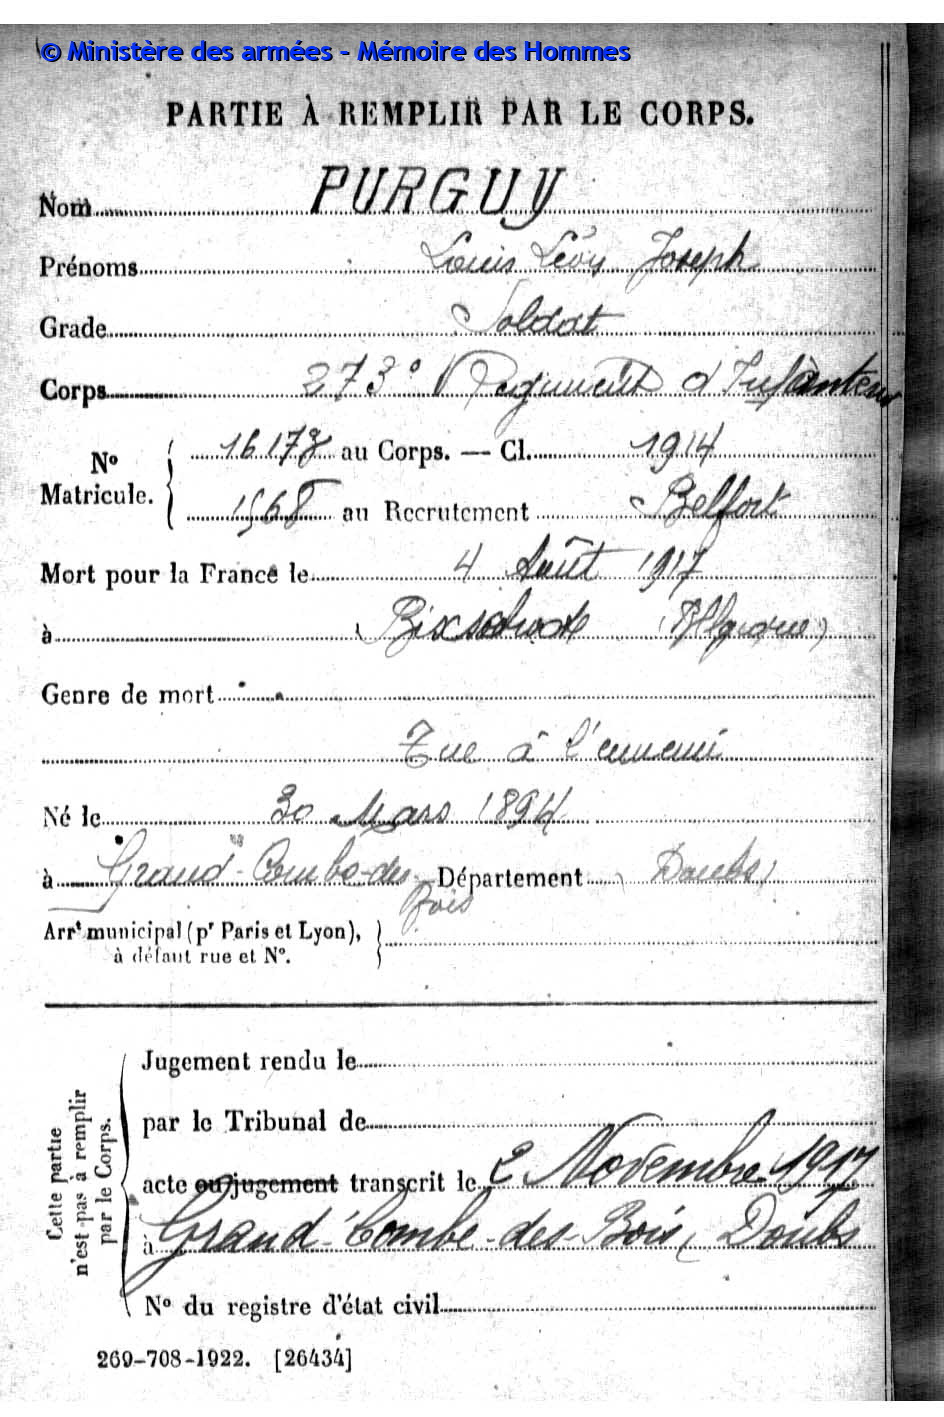 © Ministère des armées - Mémoire des Hommes
PARTIE À REMPLIR PAR LE CORPS.
Nom PURGUY
Prénoms Louis Lévy Joseph
Grade Soldat
Corps 273e Régiment d'Infanterie
No Matricule. 16173 au Corps. — Cl. 1914
1568 au Recrutement Belfort
Mort pour la France le 4 Août 1917
à Bixschoote (Belgique)
Genre de mort
Tué à l'ennemi
Né le 30 Mars 1894
à Grand-Combe-des- Département Doubs
Bois
Arrt municipal (pr Paris et Lyon),
à défaut rue et No.
Cette partie n'est pas à remplir par le Corps.
Jugement rendu le
par le Tribunal de
acte ou jugement transcrit le 2 Novembre 1917
à Grand-Combe-des-Bois, Doubs
No du registre d'état civil
269-708-1922. [26434]